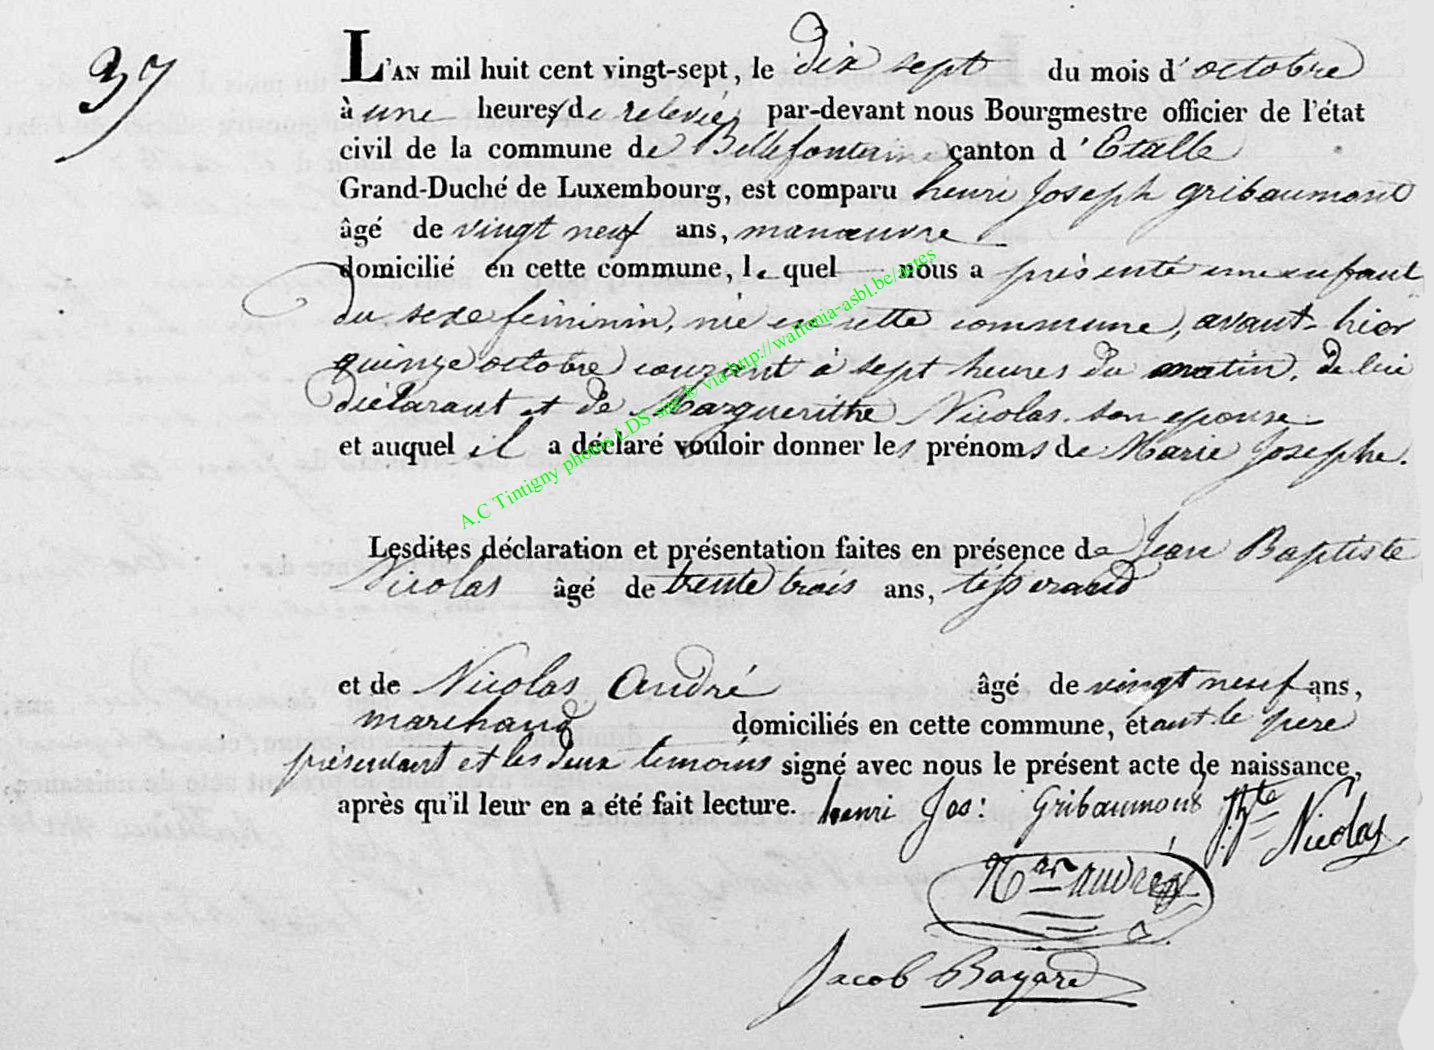 37
L'AN mil huit cent vingt-sept, le dix sept du mois d'octobre
à une heures de relevée, par-devant nous Bourgmestre officier de l'état
civil de la commune de Bellefontaine canton d'Etalle
Grand-Duché de Luxembourg, est comparu henri Joseph gribaumont
âgé de vingt neuf ans, manœuvre
domicilié en cette commune, le quel nous a présenté une enfant
du sexe féminin, née en cette commune, avant-hier
quinze octobre courant à sept heures du matin, de lui
déclarant et de Marguerithe Nicolas son epouse
et auquel il a déclaré vouloir donner les prénoms de Marie Josephe.
A.C Tintigny photos LDS sur © via http://wallonia-asbl.be/actes
Lesdites déclaration et présentation faites en présence de Jean Baptiste
Nicolas âgé de trente trois ans, tisserand
et de Nicolas André âgé de vingt neuf ans,
marchand domiciliés en cette commune, étant le père
présentant et les deux temoins signé avec nous le présent acte de naissance,
après qu'il leur en a été fait lecture. henri Jos: Gribaumont J.Bte Nicolas
Nas andré
Jacob Bayard